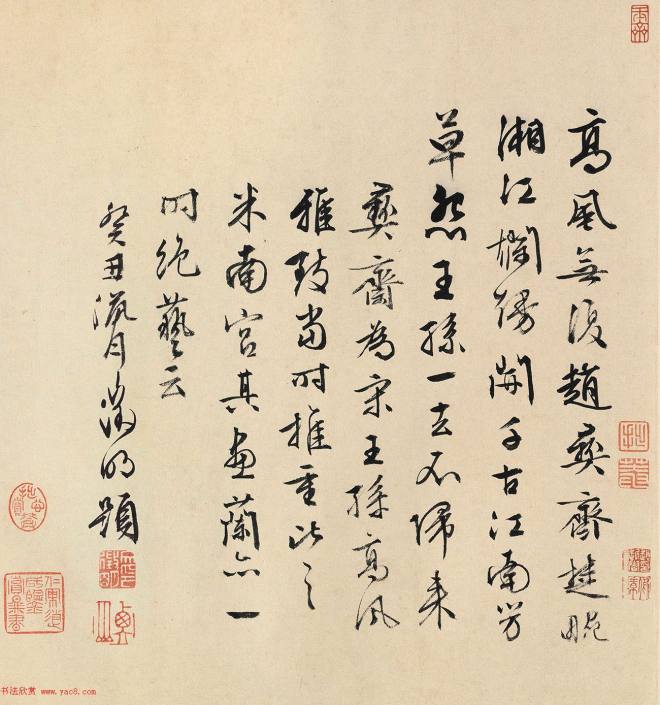 高風無復趙彝齋楚畹
湘江爛熳開千古江南芳
草怨王孫一去不歸来
彝齋為宋王孫高風
雅致當時推重比之
米南宮其畫蘭亦一
時絕藝云
癸丑臘月徵明題
书法欣赏 www.yac8.com